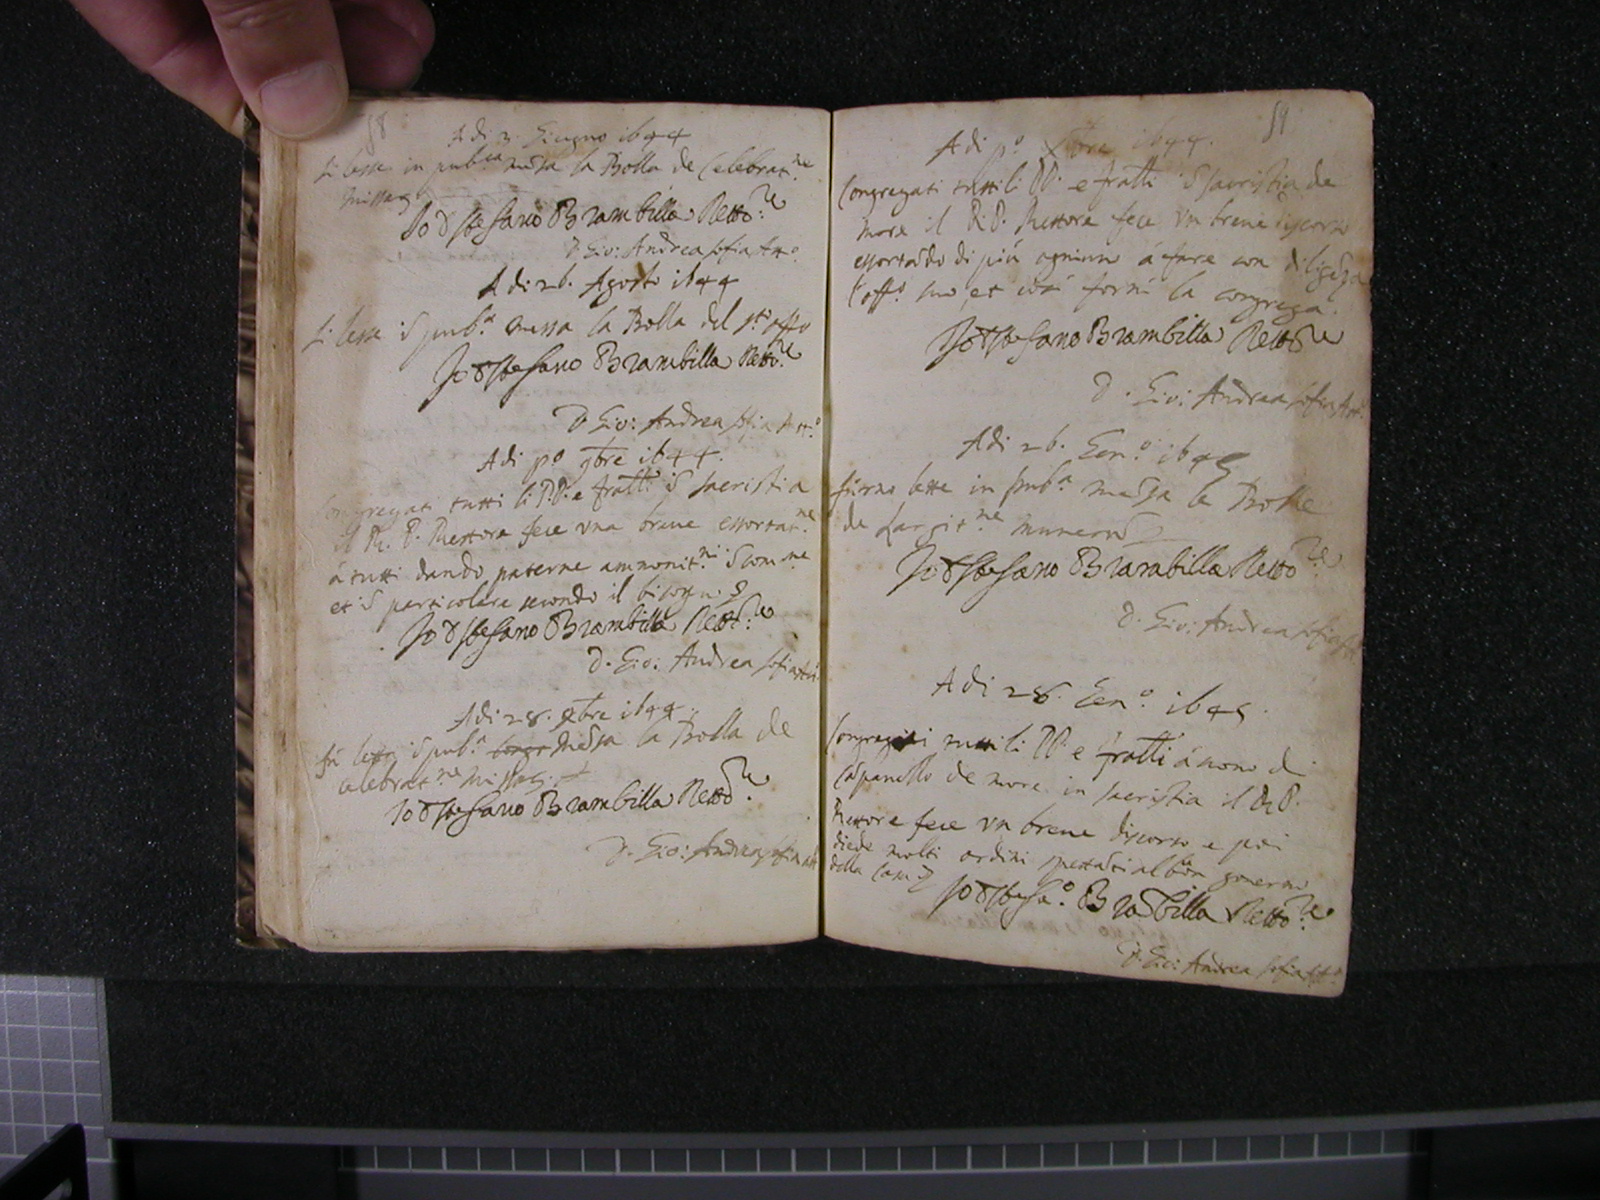 58
Adi 3. Giugno 1644
Si lesse in pub.ca messa la Bolla de Celebrat.ne
Missar
Jo D Stefano Brambilla Retto.re
D. Gio: Andrea sofia Att.o
Adi 26. Agosto 1644
Si lesse ī pub.a messa la Bolla del s.to offo
Jo D Stefano Brambilla Retto.re
D. Gio: Andrea sofia Att.o
Adi p.o 9bre 1644.
Congregati tutti li P.P. e fratti ī sacristia
il R. P. Rettore fece una breue essortat.ne
á tutti dando paterne ammonit.ni ī com.ne
et ī particolare secondo il bisogno
Jo D Stefano Brambilla Rett.re
D. Gio: Andrea sofia Att.o
Adi 28. Xbre 1644.
fú letta ī pub.a messa la Bolla de
celebrat.ne Missar
Jo D Stefano Brambilla Retto.re
D. Gio: Andrea sofia Att
59
Adi p.o Xbre 1644.
Congregati tutti li PP. e fratti ī sacristia de
more il R. P. Rettore fece un breue discorso
essortādo di piú ogniuno á fare con diligēza
l'off.o suo, et cosí forní la congrega.
Jo D Stefano Brambilla Retto.re
D. Gio: Andrea sofia Att.o
Adi 26. Gen.o 1645
furno lette in pub.a messa le Bolle
de Largit.ne munerū
Jo D Stefano Brambilla Retto.re
D. Gio: Andrea sofia Att
Adi 28. Gen.o 1645.
Congregati tutti li PP. e fratti á suono di
cāpanello de more in sacristia il R. P.
Rettore fece un breue discorso e poi
diede molti ordini spettāti al bon gouerno
della Casa
Jo D Stefa.o Brābilla Retto.re
D. Gio: Andrea sofia Att.o